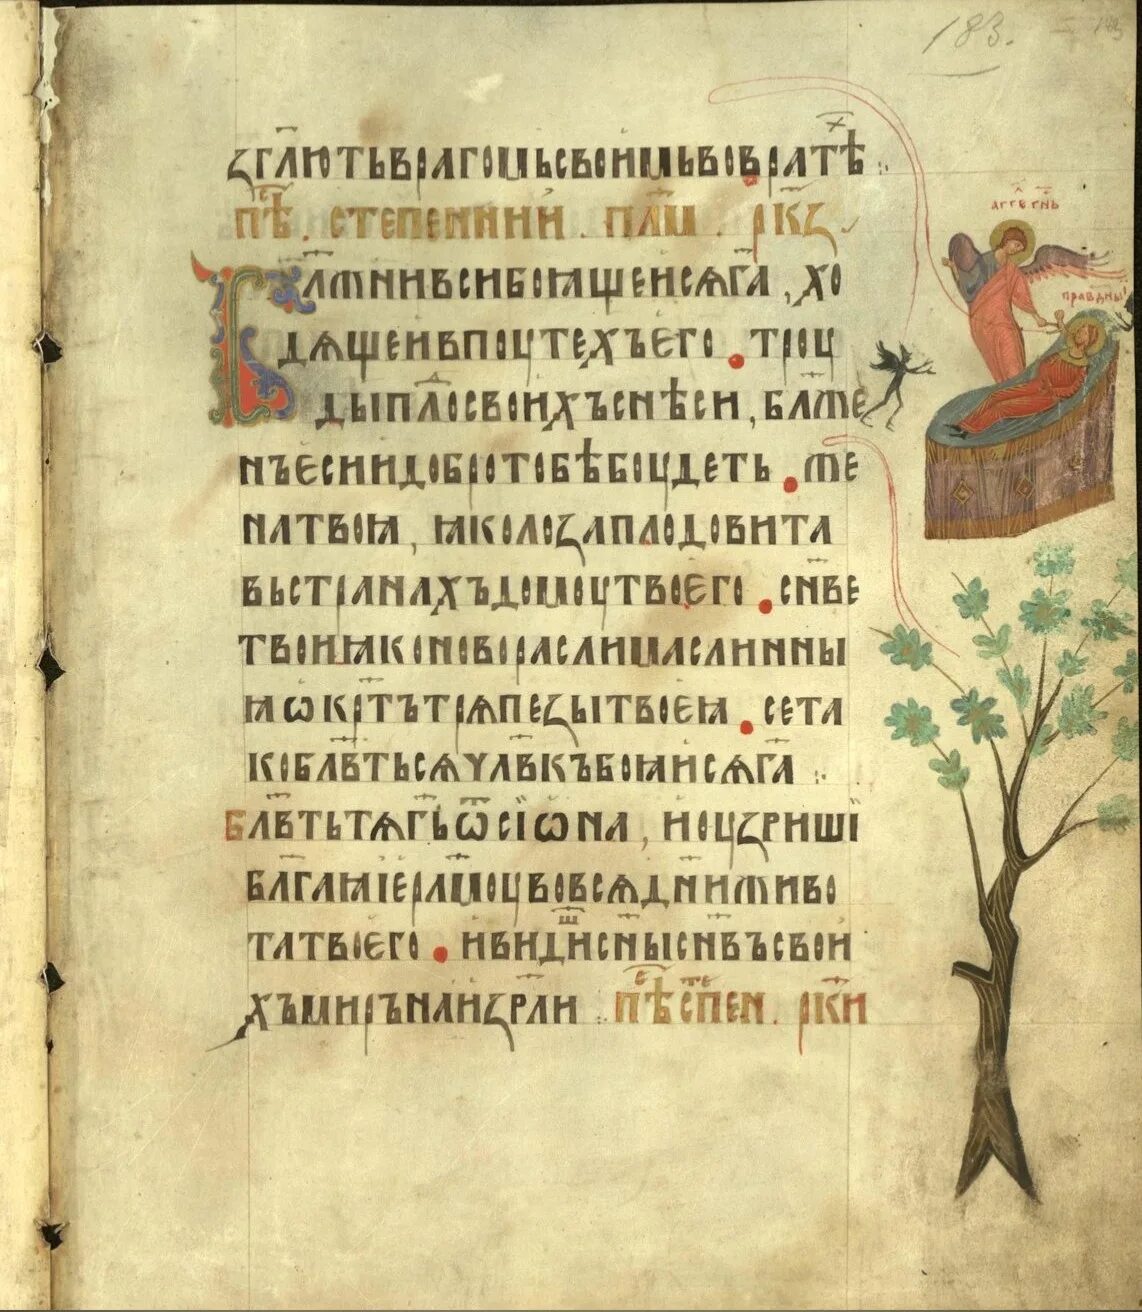 183.
ꙁгл҃ють врагомь своимь вовратѣх :
пѣс . степенныи . пл҃м . рк҃ꙁ .
Бл҃жни вси боꙗщеисѧ г҃а , хо
дѧщеи в поутехъ его . троу
ды плод своихъ снѣси , бл҃же
нъ еси и добро тобѣ боудеть . же
на твоꙗ , ꙗко лоꙁа плодовита
вь странахъ домоу твоего . сн҃ве
твои ꙗко новорасли маслинны
ꙗ ѡкр҃тъ трѧпеꙁы твоеꙗ . се та
ко блв҃тьсѧ чл҃вкъ боꙗисѧ г҃а :
Блв҃ть тѧ г҃ь ѿ сїѡна , и оуꙁриши
бл҃гаꙗ іерл҃моу во всѧ дн҃и живо
та твоего . и видиши сн҃ы сн҃въ свои
хъ миръ на иꙁрл҃и : пѣс степен . рк҃и
агг҃л г҃нь
правдны